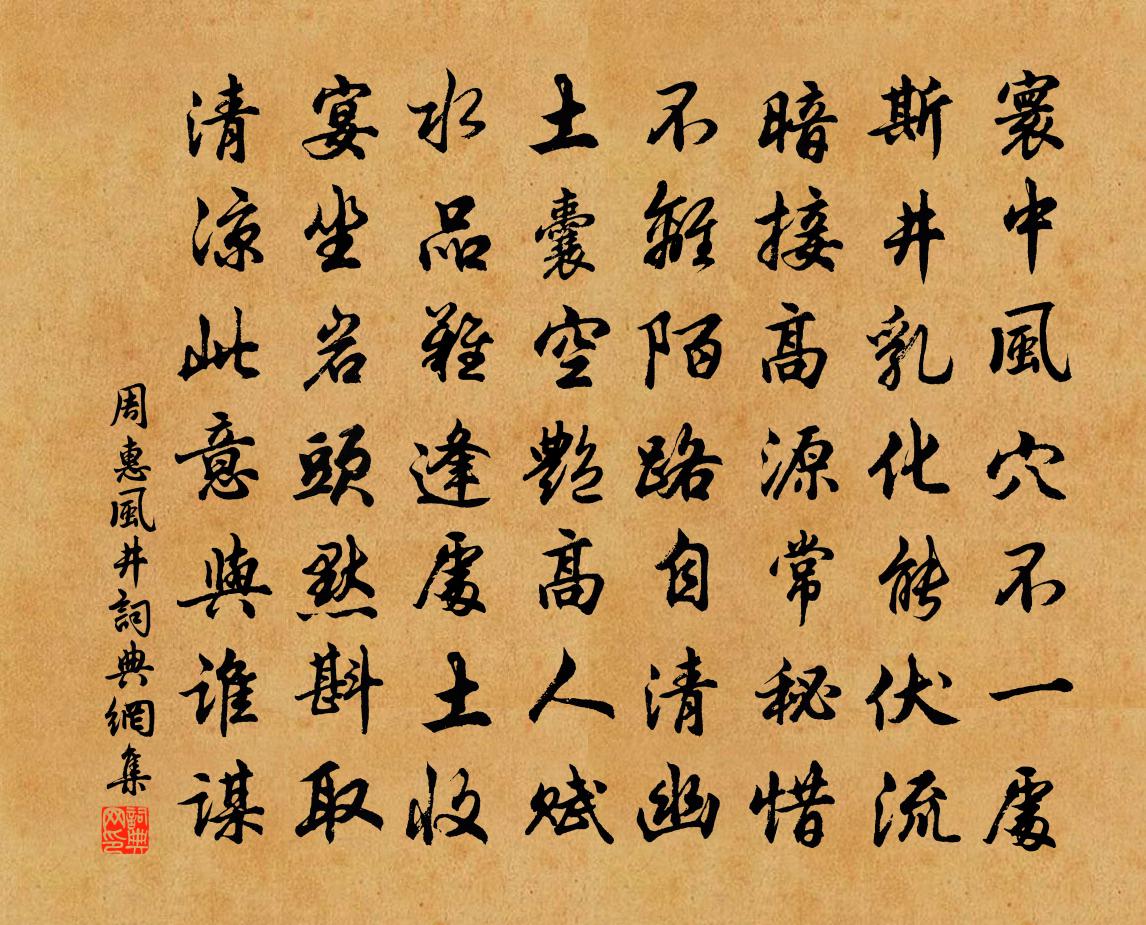 寰中風穴不一處
斯井乳化能伏流
暗接高源常秘惜
不離陌路自清幽
土囊空艷高人賦
水品難逢處土收
宴坐岩頭默斟取
清涼此意與誰謀
周惠風井詞典網集
詞典网印